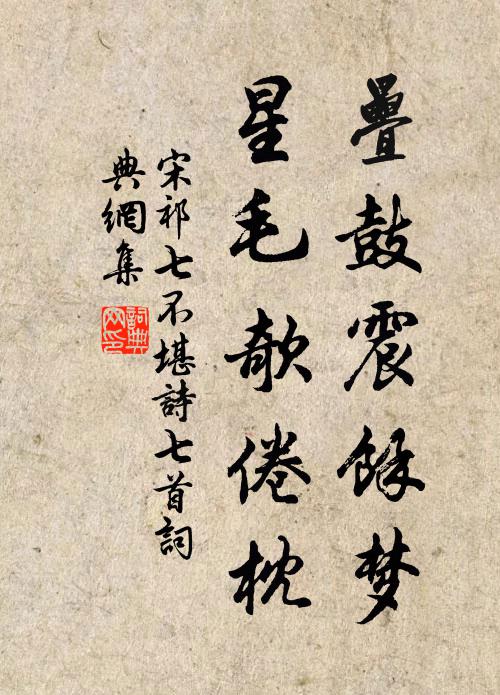 疊鼓震餘梦
星毛欹倦枕
宋祁七不堪詩七首詞
典網集
詞典
网印